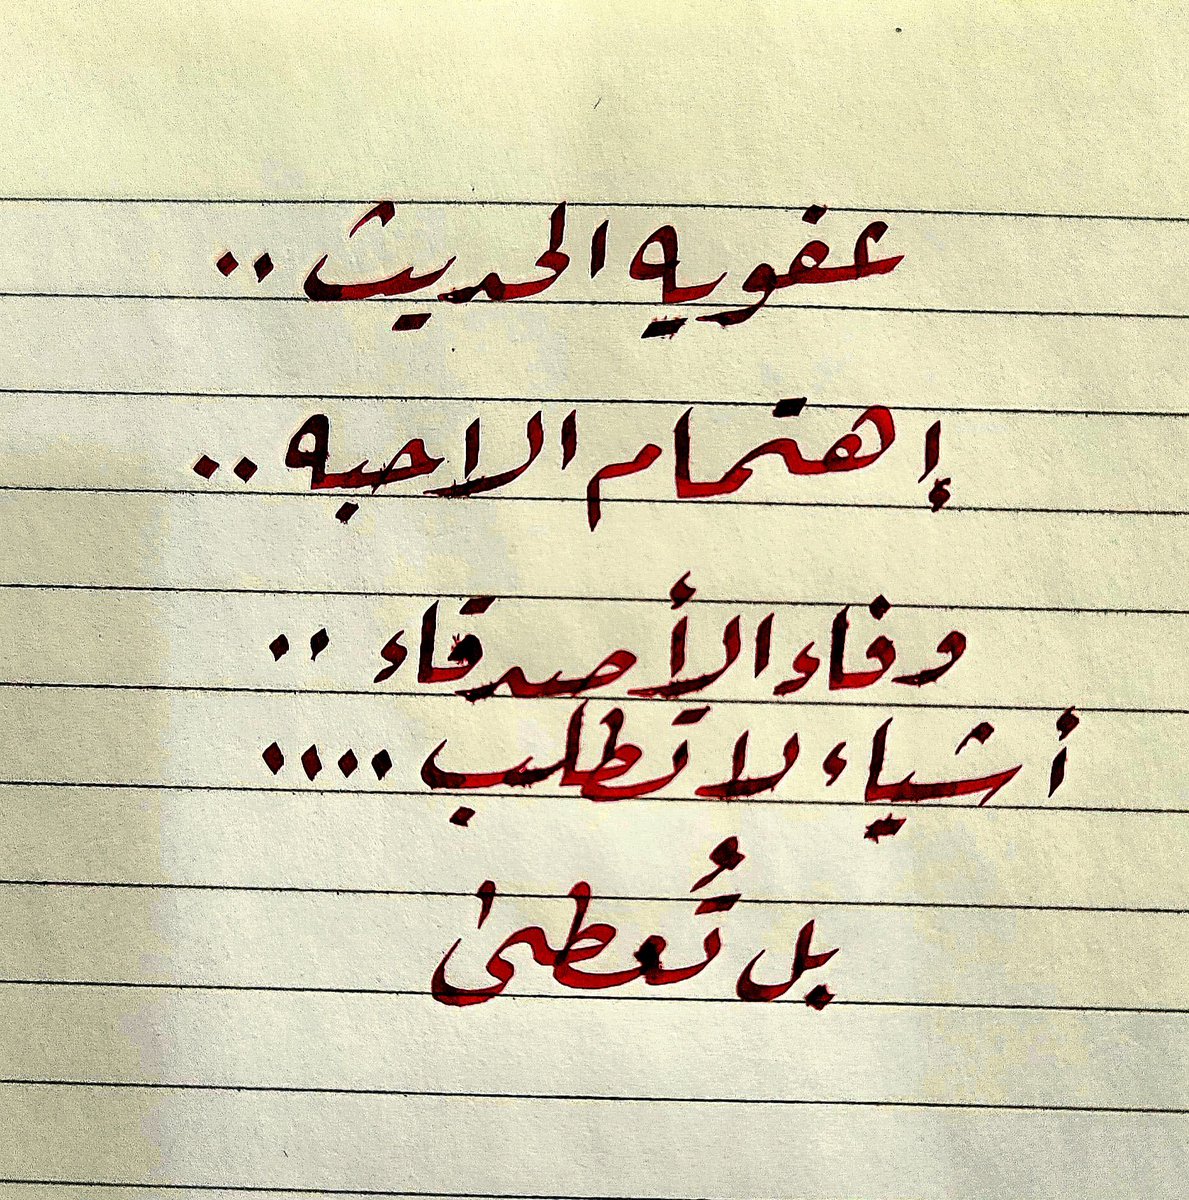 عفويه الحديث ..
إهتمام الاحبه ..
وفاء الأصدقاء ..
أشياء لا تطلب ....
بل تُعطىٰ